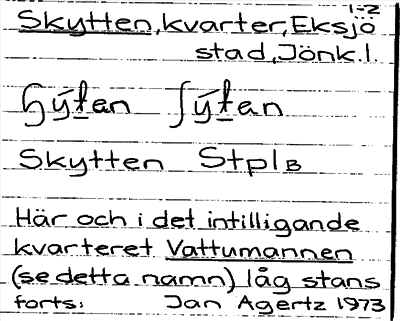 1-2
Skytten, kvarter, Eksjö
stad, Jönk.l.
Skytten StplB
Här och i det intilligande
kvarteret Vattumannen
(se detta namn) låg stans
forts: Jan Agertz 1973